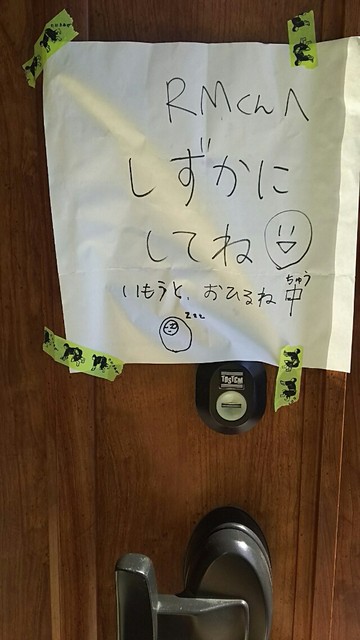 RMくんへ
しずかに
してね
いもうと、おひるね中
ちゅう
zzz
TOSTEM